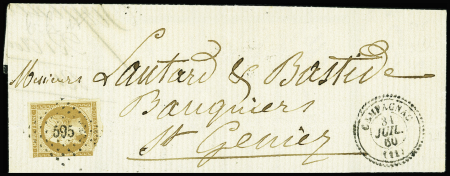 Messieurs Lautard & Bastide
Banquiers
St Geniez
595
CAMPAGNAC
31
JUIL.
60
(11)